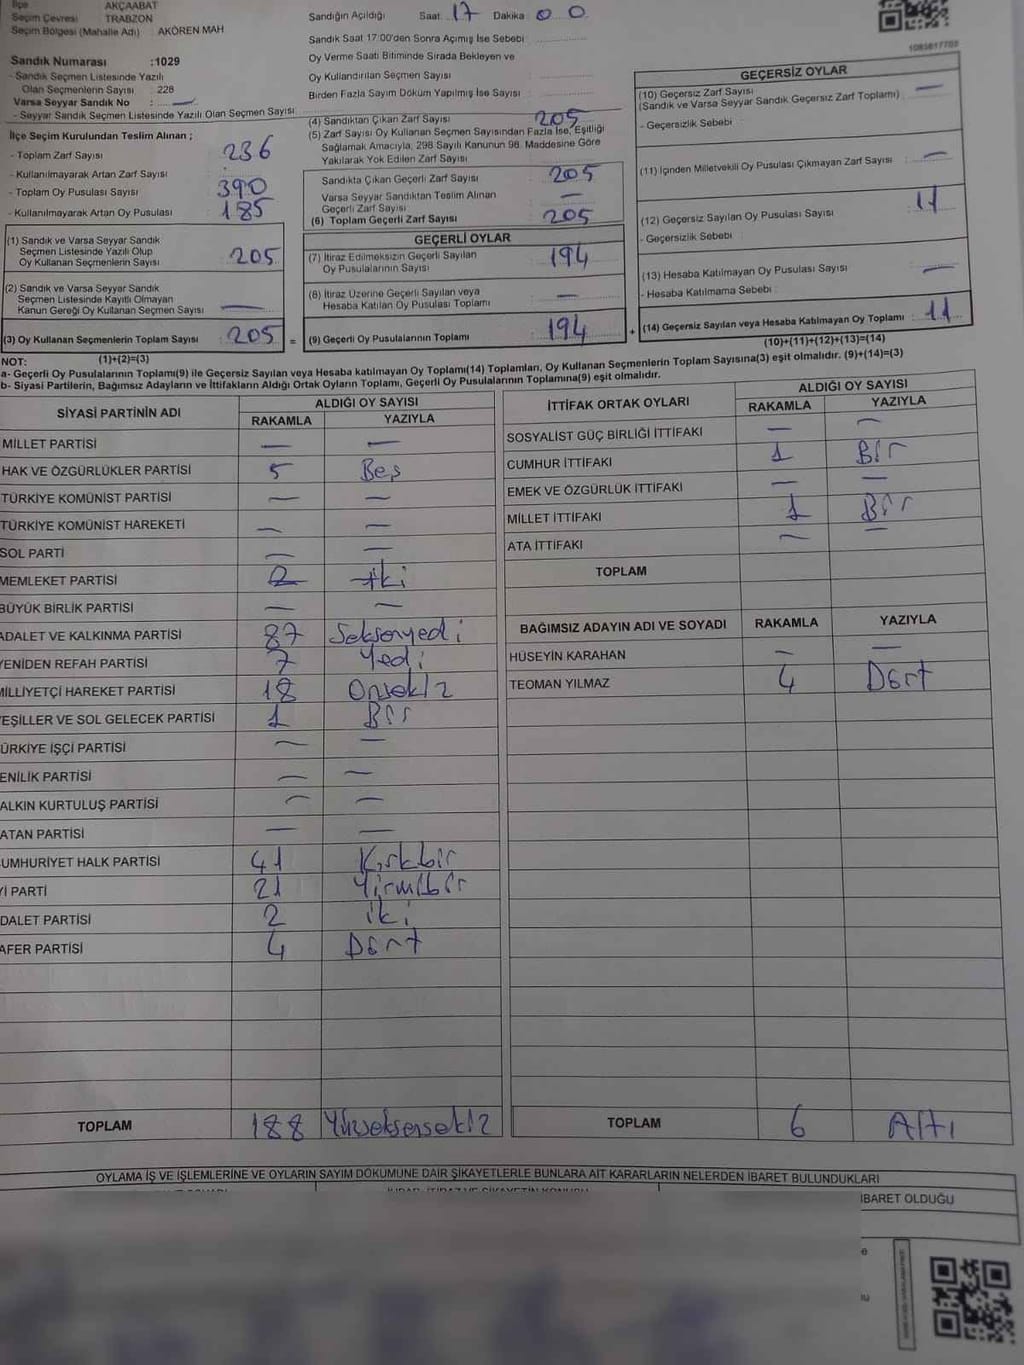 İlçe AKÇAABAT
Seçim Çevresi TRABZON
Seçim Bölgesi (Mahalle Adı) AKÖREN MAH
Sandık Numarası :1029
- Sandık Seçmen Listesinde Yazılı
Olan Seçmenlerin Sayısı : 228
Varsa Seyyar Sandık No : —
- Seyyar Sandık Seçmen Listesinde Yazılı Olan Seçmen Sayısı
İlçe Seçim Kurulundan Teslim Alınan ;
- Toplam Zarf Sayısı 236
- Kullanılmayarak Artan Zarf Sayısı
- Toplam Oy Pusulası Sayısı 390
- Kullanılmayarak Artan Oy Pusulası 185
(1) Sandık ve Varsa Seyyar Sandık
Seçmen Listesinde Yazılı Olup
Oy Kullanan Seçmenlerin Sayısı 205
(2) Sandık ve Varsa Seyyar Sandık
Seçmen Listesinde Kayıtlı Olmayan
Kanun Gereği Oy Kullanan Seçmen Sayısı —
(3) Oy Kullanan Seçmenlerin Toplam Sayısı : 205
(1)+(2)=(3)
Sandığın Açıldığı Saat 17 Dakika 00
Sandık Saat 17:00'den Sonra Açılmış İse Sebebi :
Oy Verme Saati Bitiminde Sırada Bekleyen ve
Oy Kullandırılan Seçmen Sayısı :
Birden Fazla Sayım Döküm Yapılmış İse Sayısı :
(4) Sandıktan Çıkan Zarf Sayısı 205
(5) Zarf Sayısı Oy Kullanan Seçmen Sayısından Fazla İse, Eşitliği
Sağlamak Amacıyla, 298 Sayılı Kanunun 98. Maddesine Göre
Yakılarak Yok Edilen Zarf Sayısı
Sandıkta Çıkan Geçerli Zarf Sayısı 205
Varsa Seyyar Sandıktan Teslim Alınan
Geçerli Zarf Sayısı —
(6) Toplam Geçerli Zarf Sayısı 205
GEÇERLİ OYLAR
(7) İtiraz Edilmeksizin Geçerli Sayılan
Oy Pusulalarının Sayısı 194
(8) İtiraz Üzerine Geçerli Sayılan veya
Hesaba Katılan Oy Pusulası Toplamı —
= (9) Geçerli Oy Pusulalarının Toplamı : 194 +
1083617703
GEÇERSİZ OYLAR
(10) Geçersiz Zarf Sayısı —
(Sandık ve Varsa Seyyar Sandık Geçersiz Zarf Toplamı)
- Geçersizlik Sebebi :
(11) İçinden Milletvekili Oy Pusulası Çıkmayan Zarf Sayısı —
(12) Geçersiz Sayılan Oy Pusulası Sayısı 11
- Geçersizlik Sebebi :
(13) Hesaba Katılmayan Oy Pusulası Sayısı —
- Hesaba Katılmama Sebebi :
(14) Geçersiz Sayılan veya Hesaba Katılmayan Oy Toplamı : 11
(10)+(11)+(12)+(13)=(14)
NOT:
a- Geçerli Oy Pusulalarının Toplamı(9) ile Geçersiz Sayılan veya Hesaba katılmayan Oy Toplamı(14) Toplamları, Oy Kullanan Seçmenlerin Toplam Sayısına(3) eşit olmalıdır. (9)+(14)=(3)
b- Siyasi Partilerin, Bağımsız Adayların ve İttifakların Aldığı Ortak Oyların Toplamı, Geçerli Oy Pusulalarının Toplamına(9) eşit olmalıdır.
SİYASİ PARTİNİN ADI ALDIĞI OY SAYISI
RAKAMLA YAZIYLA
MİLLET PARTİSİ — —
HAK VE ÖZGÜRLÜKLER PARTİSİ 5 Beş
TÜRKİYE KOMÜNİST PARTİSİ — —
TÜRKİYE KOMÜNİST HAREKETİ — —
SOL PARTİ — —
MEMLEKET PARTİSİ 2 iki
BÜYÜK BİRLİK PARTİSİ — —
ADALET VE KALKINMA PARTİSİ 87 Seksenyedi
YENİDEN REFAH PARTİSİ 7 Yedi
MİLLİYETÇİ HAREKET PARTİSİ 18 Onsekiz
YEŞİLLER VE SOL GELECEK PARTİSİ 1 Bir
ÜRKİYE İŞÇİ PARTİSİ — —
ENİLİK PARTİSİ — —
ALKIN KURTULUŞ PARTİSİ — —
ATAN PARTİSİ — —
UMHURİYET HALK PARTİSİ 41 Kırkbir
Yİ PARTİ 21 Yirmibir
DALET PARTİSİ 2 iki
AFER PARTİSİ 4 Dört
TOPLAM 188 Yüzseksensekiz
İTTİFAK ORTAK OYLARI ALDIĞI OY SAYISI
RAKAMLA YAZIYLA
SOSYALİST GÜÇ BİRLİĞİ İTTİFAKI — —
CUMHUR İTTİFAKI 1 Bir
EMEK VE ÖZGÜRLÜK İTTİFAKI — —
MİLLET İTTİFAKI 1 Bir
ATA İTTİFAKI — —
TOPLAM
BAĞIMSIZ ADAYIN ADI VE SOYADI RAKAMLA YAZIYLA
HÜSEYİN KARAHAN — —
TEOMAN YILMAZ 4 Dört
TOPLAM 6 Altı
OYLAMA İŞ VE İŞLEMLERİNE VE OYLARIN SAYIM DÖKÜMÜNE DAİR ŞİKAYETLERLE BUNLARA AİT KARARLARIN NELERDEN İBARET BULUNDUKLARI
İBARET OLDUĞU